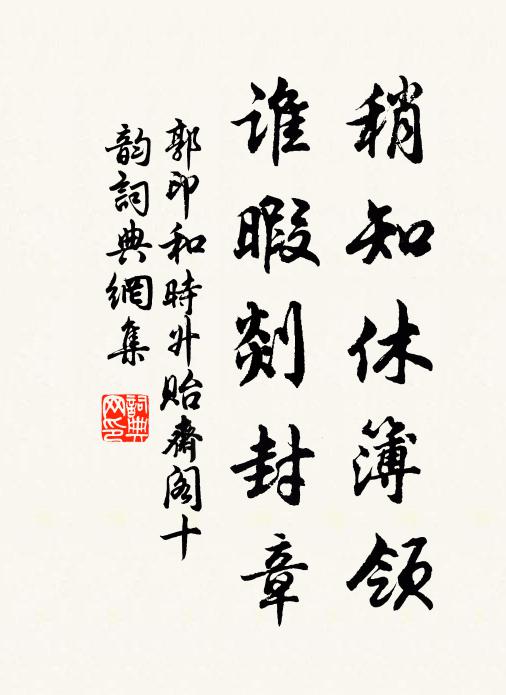 稍知休簿領
誰暇剡封章
郭印和時升貽齋閣十
韵詞典網集
詞典
网印